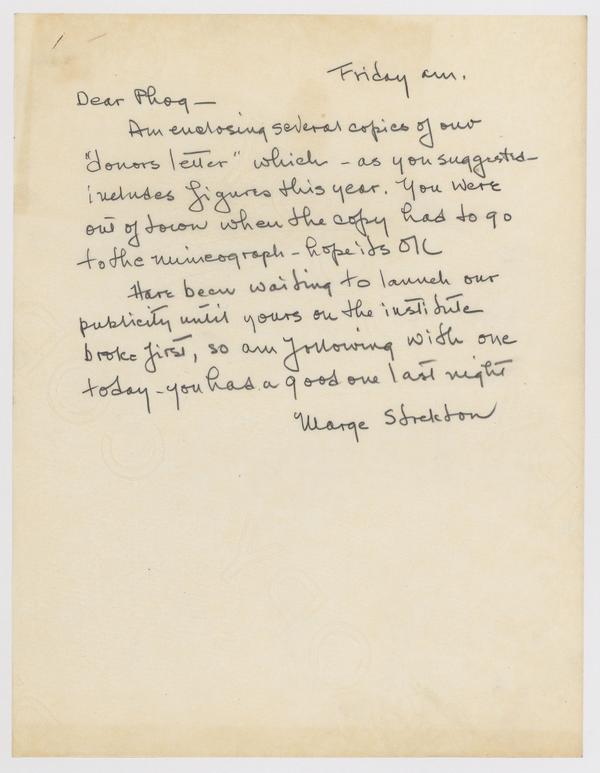 Friday am.
Dear Phog—
Am enclosing several copies of our
"donors letter" which – as you suggested –
includes figures this year. You were
out of town when the copy had to go
to the mimeograph – hope its OK
Have been waiting to launch our
publicity until yours on the institute
broke first, so am following with one
today – you had a good one last night
Marge